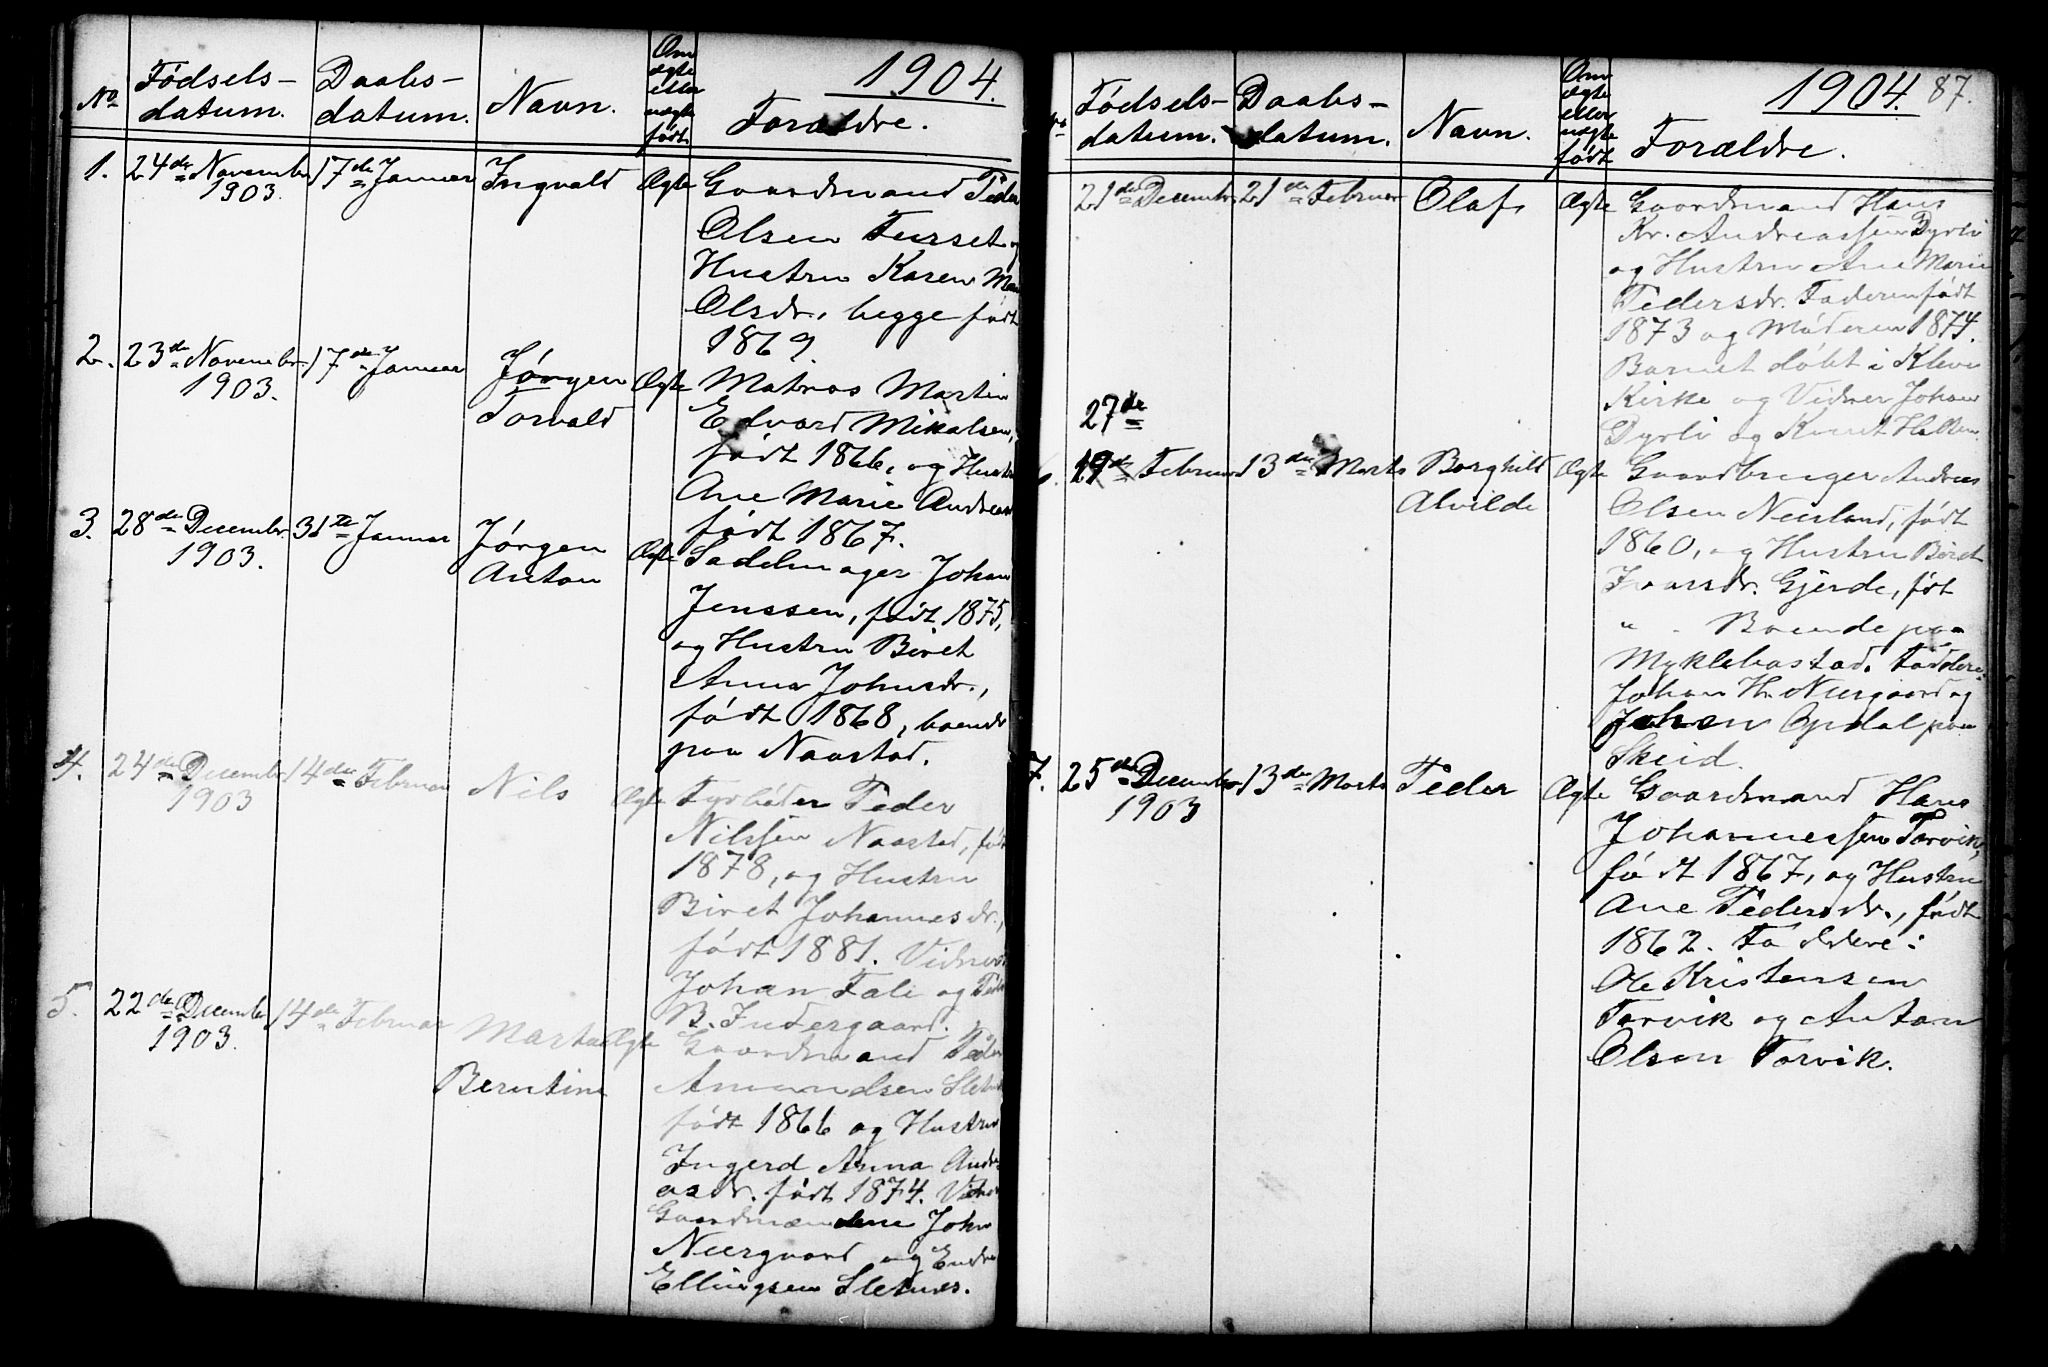 1904.
No
Fødsels-
datum.
Daabs-
datum.
Navn.
Om
ægte
eller
uægte
født.
Forældre.
1. 24de November 17de Januar Ingvald Ægte Gaardmand Peder
1903.
Olsen Furset og
Hustru Karen
Olsdr., begge født
1869.
2. 23de November 17de Januar Jørgen Ægte Matros Martin
1903. Torvald Edvard Mikalsen,
født 1866, og Hustru
Ane Marie
født 1867.
3. 28de Decembr. 31te Januar Jørgen Ægte Sadelmager Johan
1903. Anton
Jenssen, født 1875,
og Hustru Beret
Anna Johnsdr.,
født 1868, boende
paa Naastad.
4. 24de Decembr. 14de Februar Nils Ægte Fyrbøder Peder
1903
Nilssen Naastad, født
1878, og Hustru
Beret Johannesdr.,
født 1881.
Johan Fale og
B. Indergaard.
5. 22de Decembr. 14de Februar Ægte Gaardmand Peder
1903. Berntine Amundsen
født 1866 og Hustru
Ingerd Anna Andre-
asdr. født 1874.
Gaardmændene John
Neergaard og Endre
Ellingsen Sletnes.
1904. 87.
Fødsels-
datum.
Daabs-
datum.
Navn.
Om
ægte
eller
uægte
født
Forældre.
21de Decembr. 21de Februar Olaf Ægte Gaardmand Hans
Kr. Andreassen Dyrli
og Hustru Ane Marie
Pedersdr. Faderen født
1873 og Moderen 1874.
Barnet døbt i Kleive
Kirke og Vidner Johan
Dyrli og Knut
27de
19de Februar 13de Marts Borghild Ægte Gaardbruger Andreas
Alvilde Olsen Neerland, født
1860, og Hustru Beret
Ivarsdr. Gjerde, føt
" . Boende paa
Myklebostad. Faddere:
Johan H. Neergaard og
Johan Opdal paa
Skeid.
7. 25de Decembr. 13de Marts Peder Ægte Gaardmand Hans
1903 Johannessen Torvik,
født 1867, og Hustru
Ane Pedersdr., født
1862. Faddere:
Ole Kristensen
Torvik og Anton
Olsen Torvik.